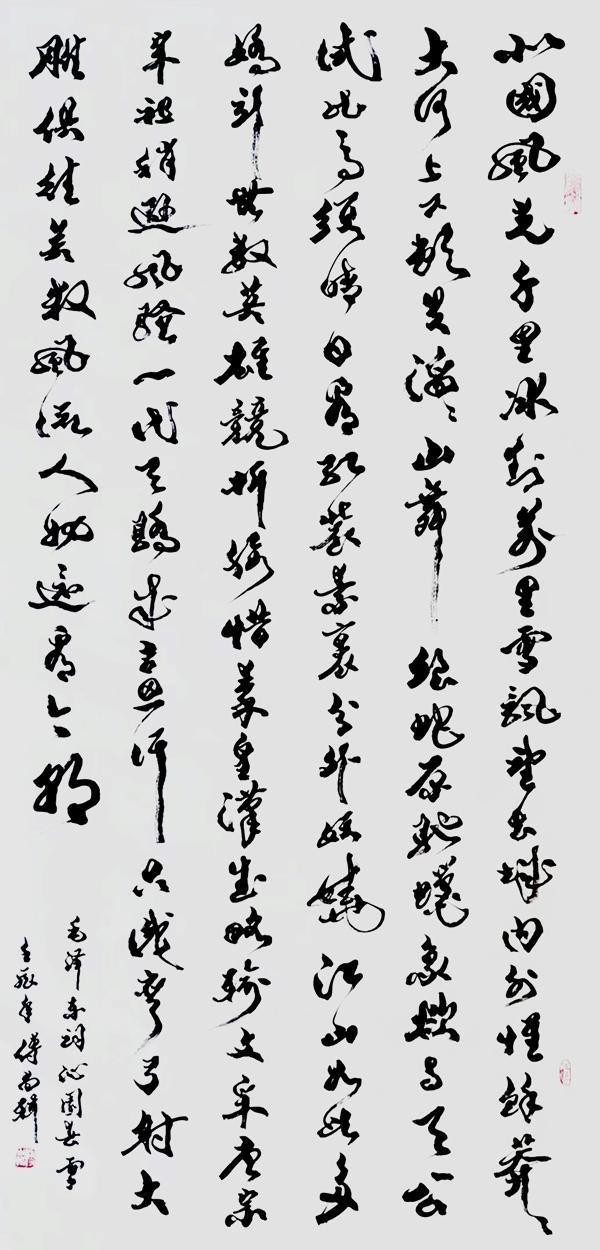 北國風光千里冰封萬里雪飄望長城内外惟餘莽々
大河上下頓失滔々山舞銀蛇原馳蠟象欲與天公
試比高須晴日看紅裝素裹分外妖嬈江山如此多
嬌引無數英雄競折腰惜秦皇漢武略輸文采唐宗
宋祖稍遜風騷一代天驕成吉思汗只識彎弓射大
雕俱往矣數風流人物還看今朝
毛泽东詞沁園春雪
年傅